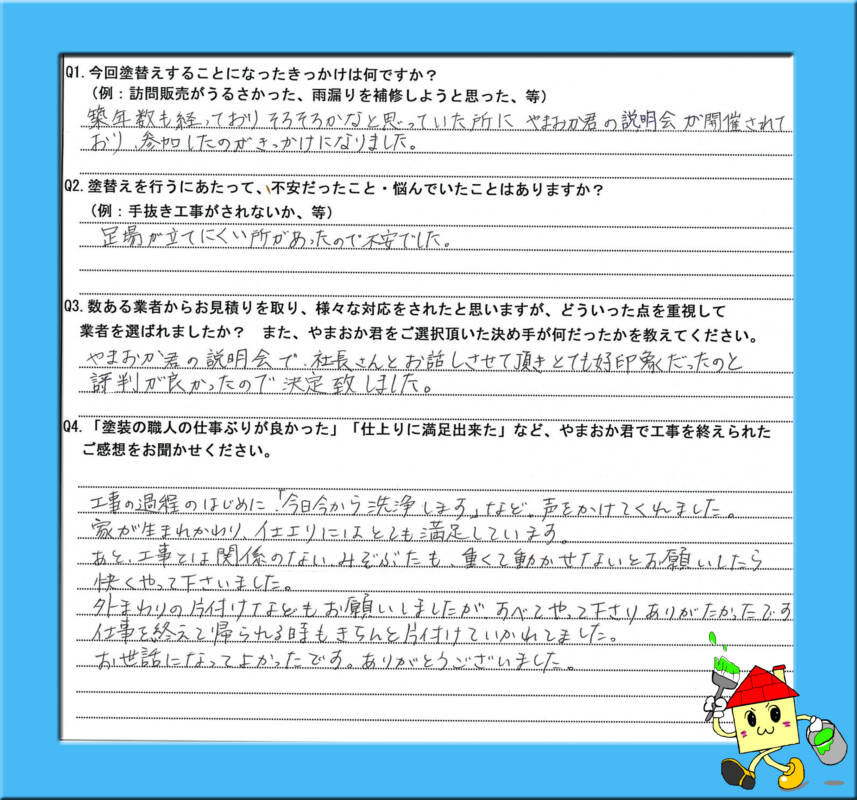 Q1. 今回塗替えすることになったきっかけは何ですか？
（例：訪問販売がうるさかった、雨漏りを補修しようと思った、等）
築年数も経っており そろそろかなと思っていた所に やまおか君の説明会が開催されて
おり、参加したのがきっかけになりました。
Q2. 塗替えを行うにあたって、不安だったこと・悩んでいたことはありますか？
（例：手抜き工事がされないか、等）
足場が立てにくい所があったので不安でした。
Q3. 数ある業者からお見積りを取り、様々な対応をされたと思いますが、どういった点を重視して
業者を選ばれましたか？　また、やまおか君をご選択頂いた決め手が何だったかを教えてください。
やまおか君の説明会で、社長さんとお話しさせて頂きとても好印象だったのと
評判が良かったので決定致しました。
Q4. 「塗装の職人の仕事ぶりが良かった」「仕上りに満足出来た」など、やまおか君で工事を終えられた
ご感想をお聞かせください。
工事の過程のはじめに「今日今から洗浄します」など、声をかけてくれました。
家が生まれかわり、仕上りにはとても満足しています。
あと、工事とは関係のない、みぞぶたも、重くて動かせないとお願いしたら
快くやって下さいました。
外まわりの片付けなどもお願いしましたが、すべてやって下さり ありがたかったです
仕事を終えて帰られる時もきちんと片付けていかれてました。
お世話になってよかったです。ありがとうございました。